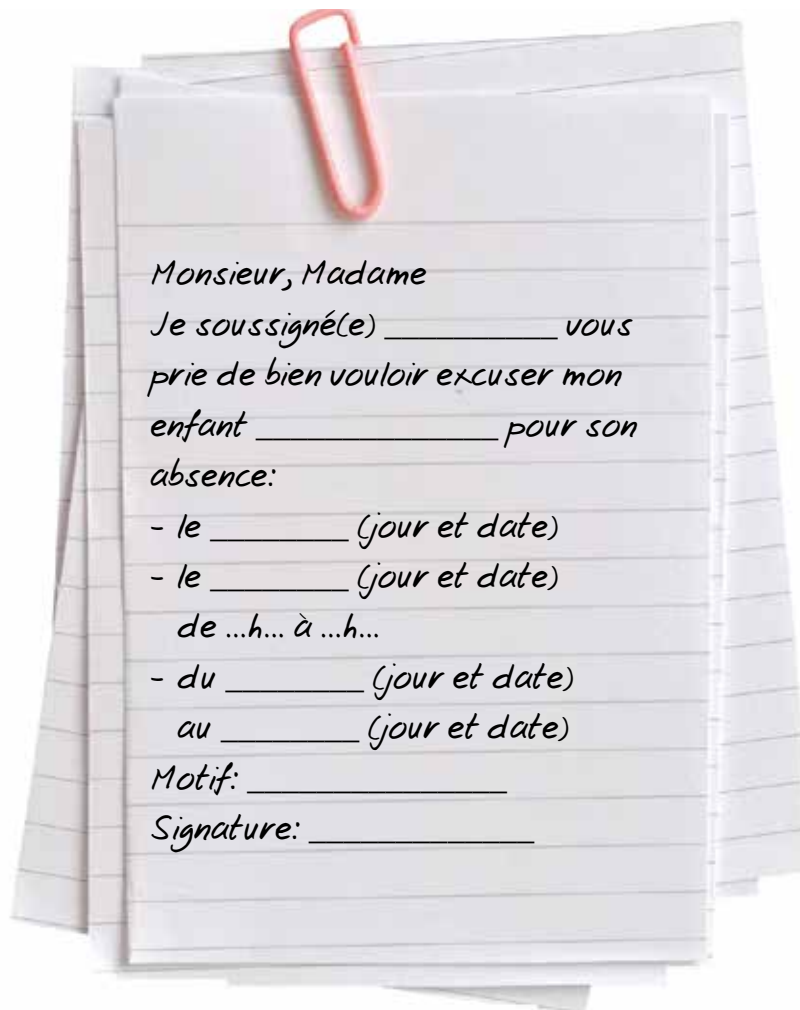 Monsieur, Madame
Je soussigné(e) __________ vous
prie de bien vouloir excuser mon
enfant ______________ pour son
absence:
- le ________ (jour et date)
- le ________ (jour et date)
de ...h... à ...h...
- du ________ (jour et date)
au ________ (jour et date)
Motif: _______________
Signature: _____________